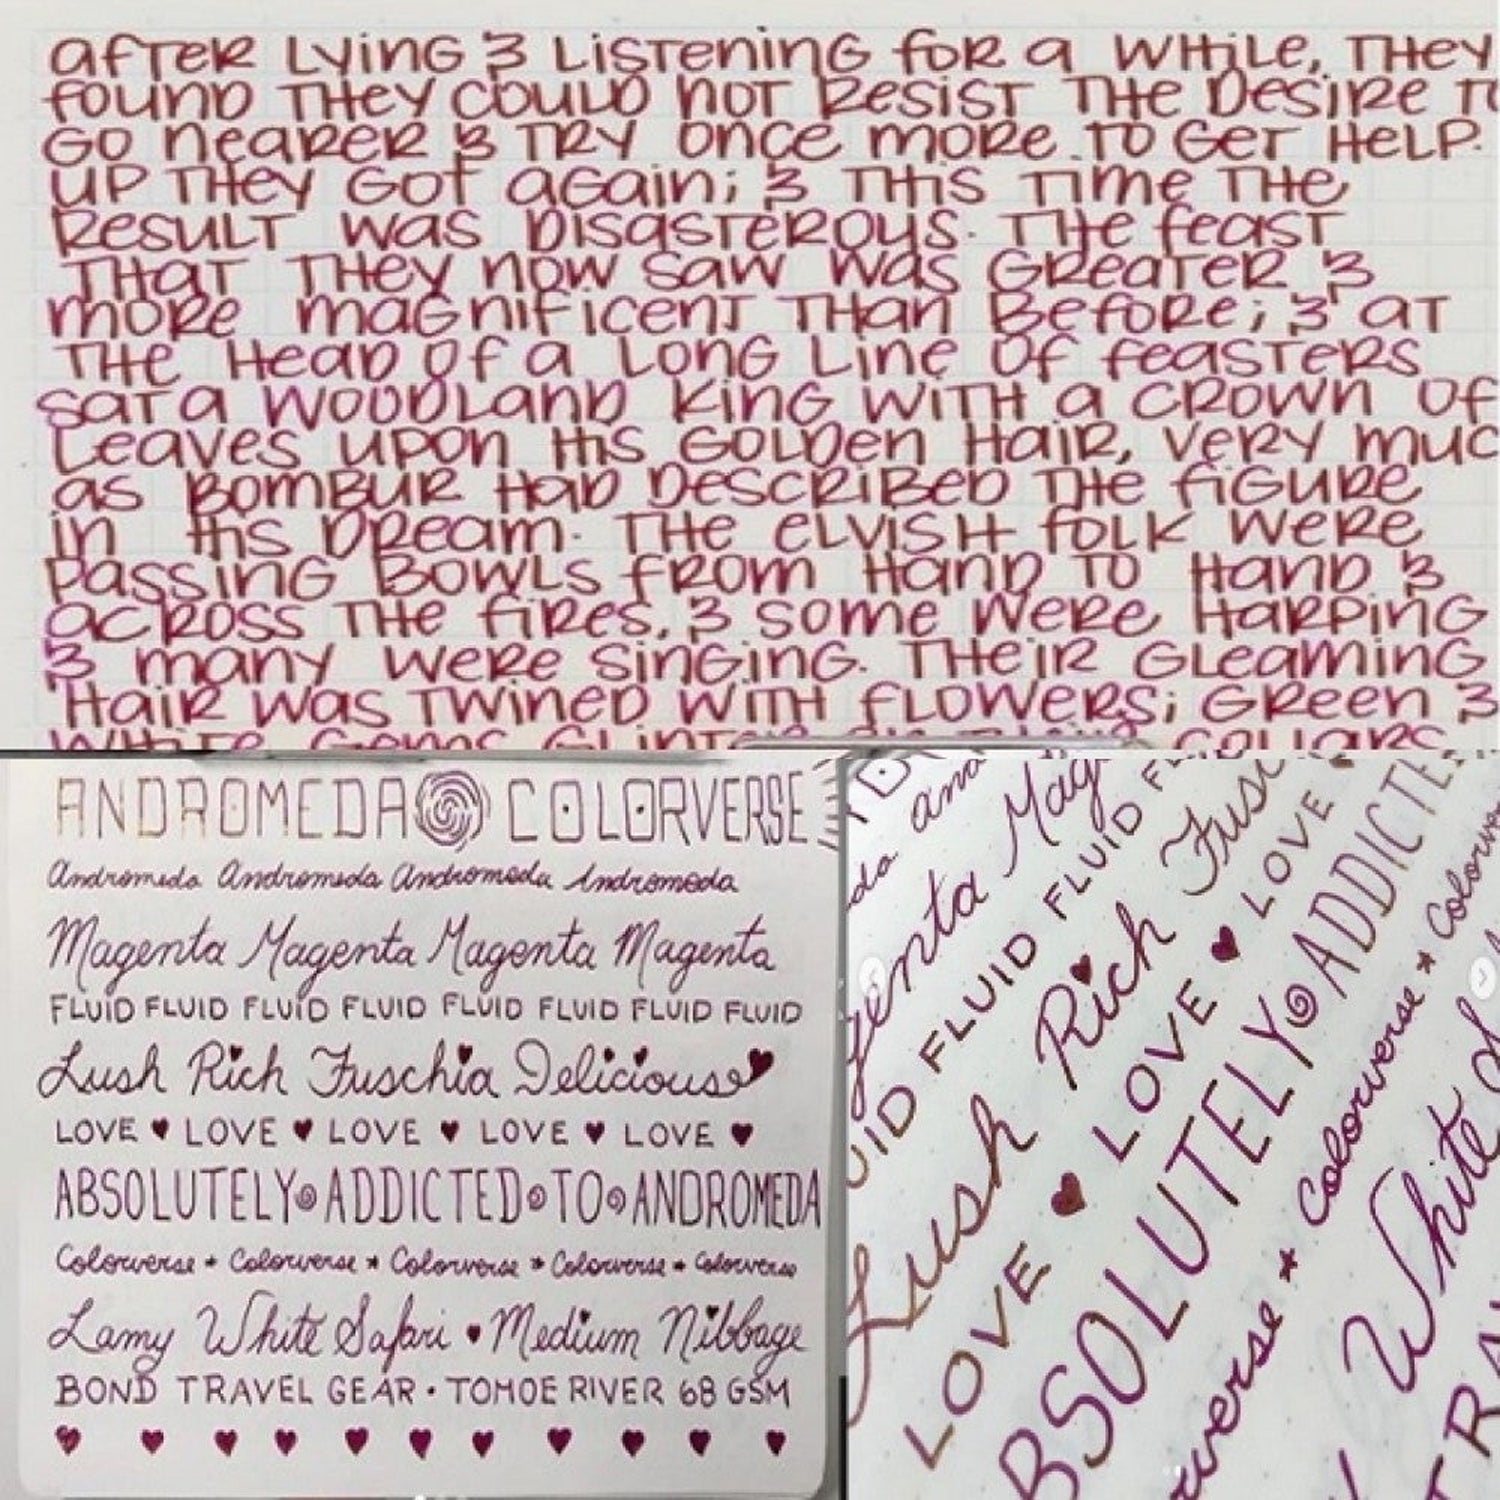 AFTER LYING & LISTENING FOR A WHILE, THEY
FOUND THEY COULD NOT RESIST THE DESIRE TO
GO NEARER & TRY ONCE MORE TO GET HELP.
UP THEY GOT AGAIN; & THIS TIME THE
RESULT WAS DISASTEROUS. THE FEAST
THAT THEY NOW SAW WAS GREATER &
MORE MAGNIFICENT THAN BEFORE; & AT
THE HEAD OF A LONG LINE OF FEASTERS
SAT A WOODLAND KING WITH A CROWN OF
LEAVES UPON HIS GOLDEN HAIR, VERY MUC
AS BOMBUR HAD DESCRIBED THE FIGURE
IN HIS DREAM. THE ELVISH FOLK WERE
PASSING BOWLS FROM HAND TO HAND &
ACROSS THE FIRES, & SOME WERE HARPING
& MANY WERE SINGING. THEIR GLEAMING
HAIR WAS TWINED WITH FLOWERS; GREEN &
WHITE GEMS COLLARS
ANDROMEDA COLORVERSE
Andromeda Andromeda Andromeda Andromeda
Magenta Magenta Magenta Magenta
FLUID FLUID FLUID FLUID FLUID FLUID FLUID FLUID
Lush Rich Fuschia Delicious
LOVE ♥ LOVE ♥ LOVE ♥ LOVE ♥ LOVE ♥
ABSOLUTELY ADDICTED TO ANDROMEDA
Colorverse * Colorverse * Colorverse * Colorverse * Colorverse
Lamy White Safari ♥ Medium Nibbage
BOND TRAVEL GEAR • TOMOE RIVER 68 GSM
eda And
genta Mag
UID FLUID FLUID F
Lush Rich Fusc
LOVE ♥ LOVE ♥ LOVE
BSOLUTELY ADDICTE
verse * Colorverse * Colorver
White
TRA